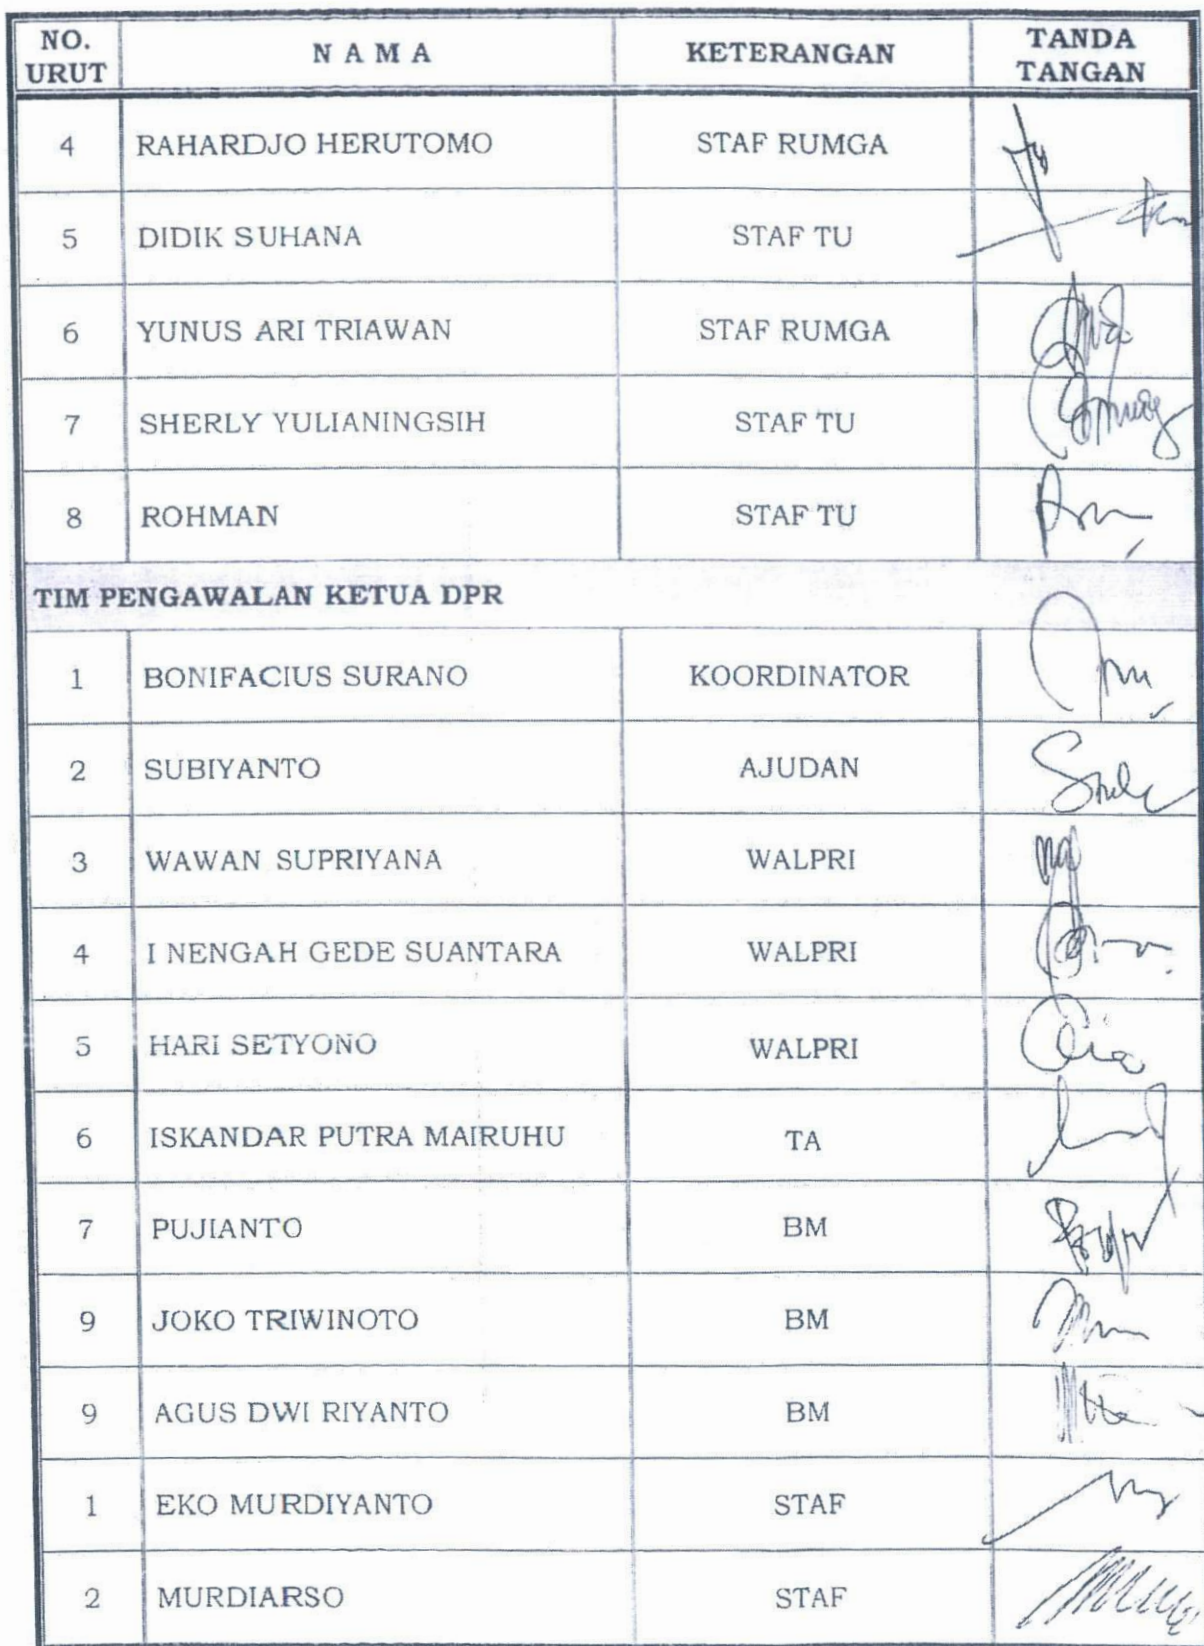 NO. URUT N A M A KETERANGAN TANDA TANGAN
4 RAHARDJO HERUTOMO STAF RUMGA
5 DIDIK SUHANA STAF TU
6 YUNUS ARI TRIAWAN STAF RUMGA
7 SHERLY YULIANINGSIH STAF TU
8 ROHMAN STAF TU
TIM PENGAWALAN KETUA DPR
1 BONIFACIUS SURANO KOORDINATOR
2 SUBIYANTO AJUDAN
3 WAWAN SUPRIYANA WALPRI
4 I NENGAH GEDE SUANTARA WALPRI
5 HARI SETYONO WALPRI
6 ISKANDAR PUTRA MAIRUHU TA
7 PUJIANTO BM
9 JOKO TRIWINOTO BM
9 AGUS DWI RIYANTO BM
1 EKO MURDIYANTO STAF
2 MURDIARSO STAF